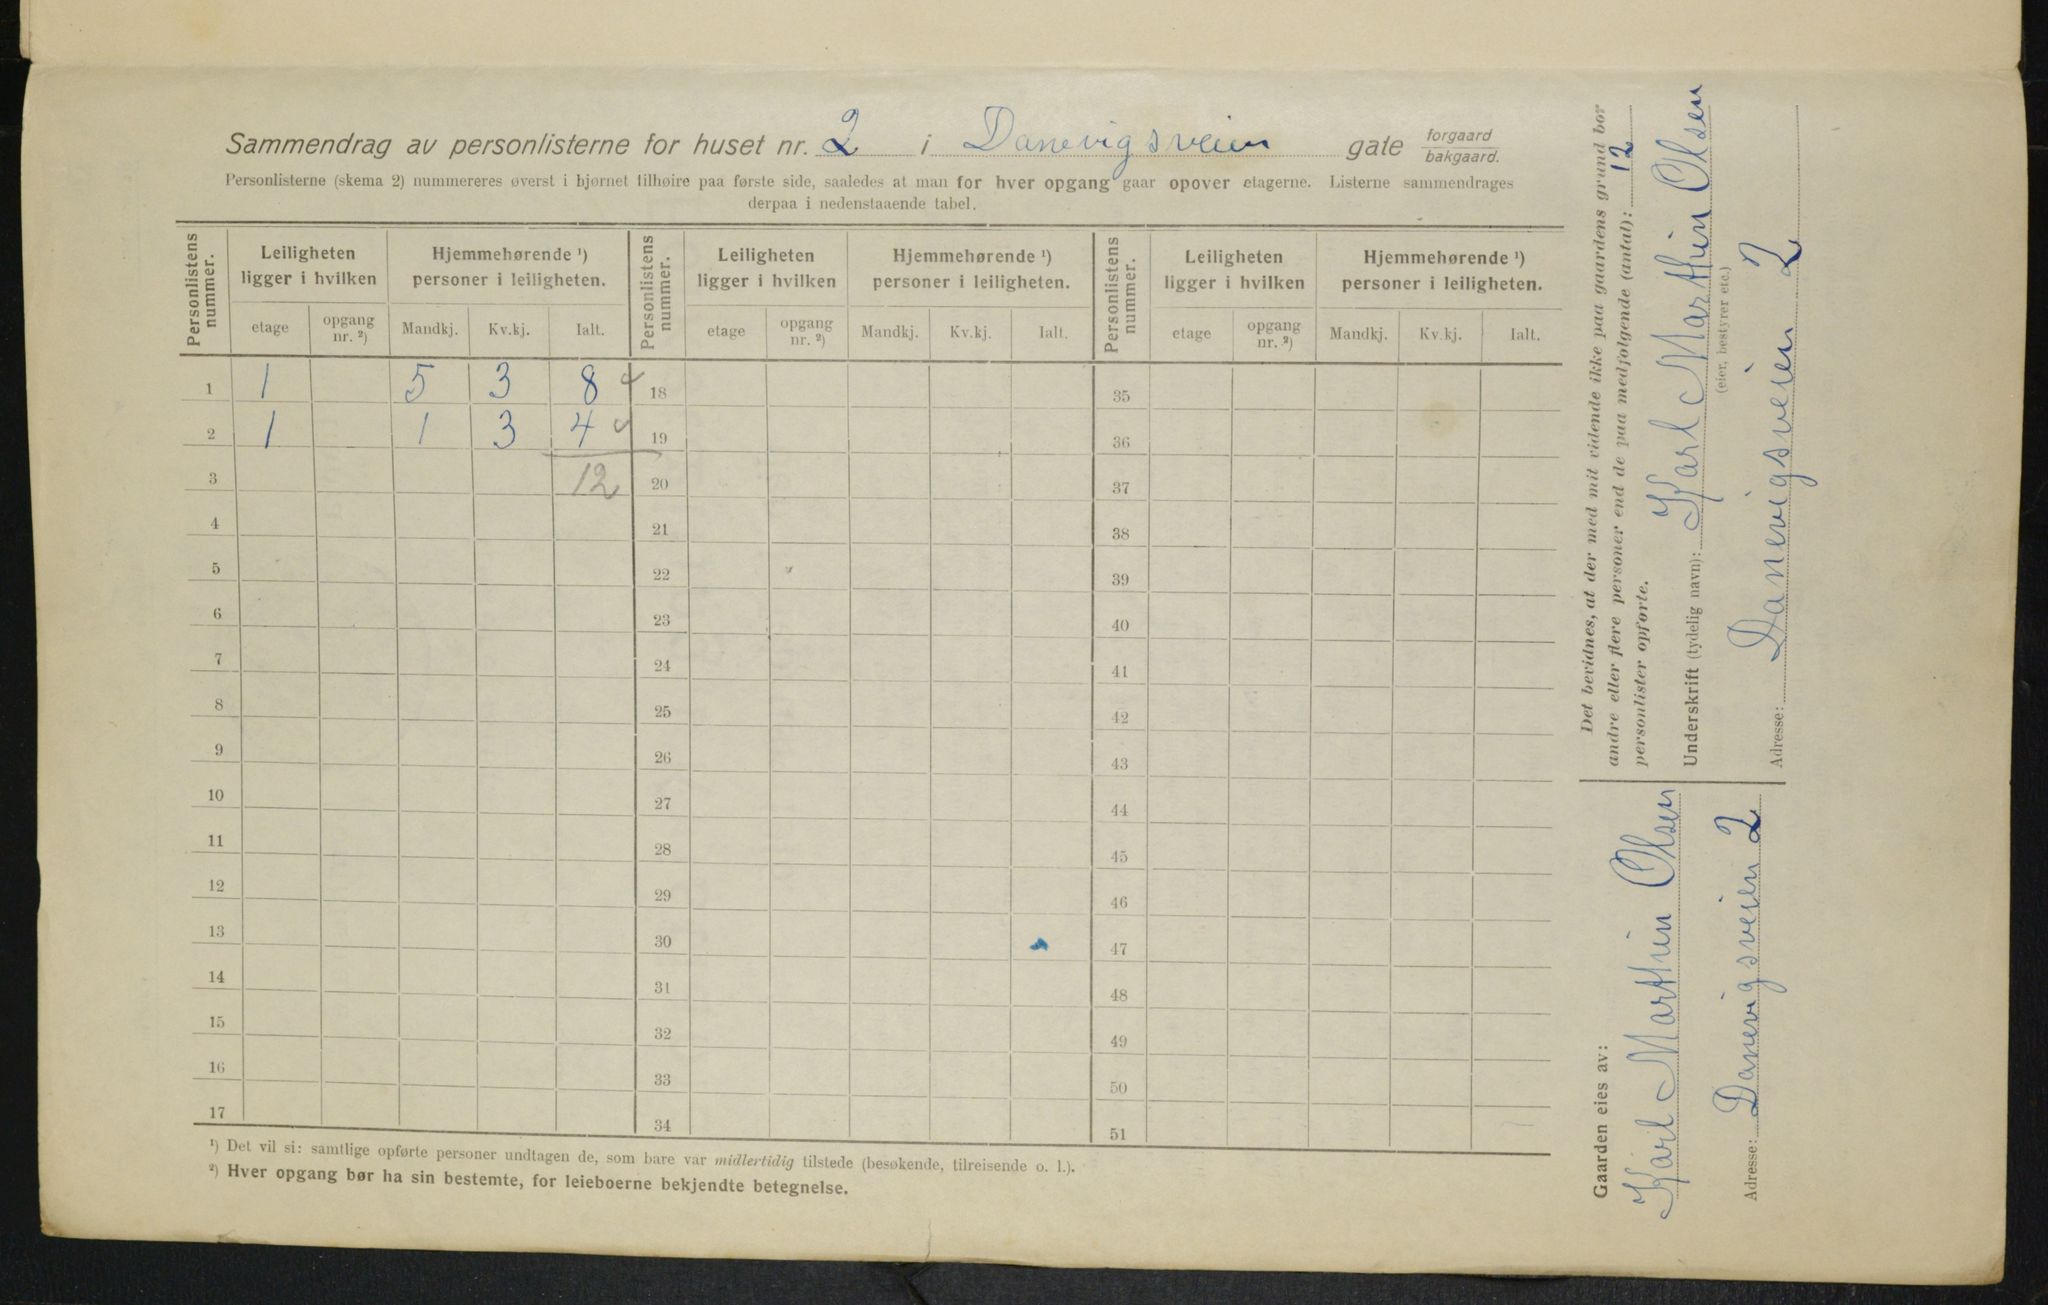 Sammendrag av personlisterne for huset nr. 2 i Danevigsveien gate forgaard bakgaard.
Personlisterne (skema 2) nummereres øverst i hjørnet tilhøire paa første side, saaledes at man for hver opgang gaar opover etagerne. Listerne sammendrages
derpaa i nedenstaaende tabel.
Personlistens nummer. Leiligheten ligger i hvilken Hjemmehørende ¹) personer i leiligheten. Personlistens nummer. Leiligheten ligger i hvilken Hjemmehørende ¹) personer i leiligheten. Personlistens nummer. Leiligheten ligger i hvilken Hjemmehørende ¹) personer i leiligheten.
etage opgang nr. ²) Mandkj. Kv.kj. Ialt. etage opgang nr. ²) Mandkj. Kv.kj. Ialt. etage opgang nr. ²) Mandkj. Kv.kj. Ialt.
1 1 5 3 8 18 35
2 1 1 3 4 19 36
3 12 20 37
4 21 38
5 22 39
6 23 40
7 24 41
8 25 42
9 26 43
10 27 44
11 28 45
12 29 46
13 30 47
14 31 48
15 32 49
16 33 50
17 34 51
¹) Det vil si: samtlige opførte personer undtagen de, som bare var midlertidig tilstede (besøkende, tilreisende o. l.).
²) Hver opgang bør ha sin bestemte, for leieboerne bekjendte betegnelse.
Det bevidnes, at der med mit vidende ikke paa gaardens grund bor
andre eller flere personer end de paa medfølgende (antal): 12
personlister opførte.
Underskrift (tydelig navn): Karl Marthin Olsen
(eier, bestyrer etc.)
Adresse: Danevigsveien 2
Gaarden eies av:
Karl Marthin Olsen
Adresse: Danevigsveien 2